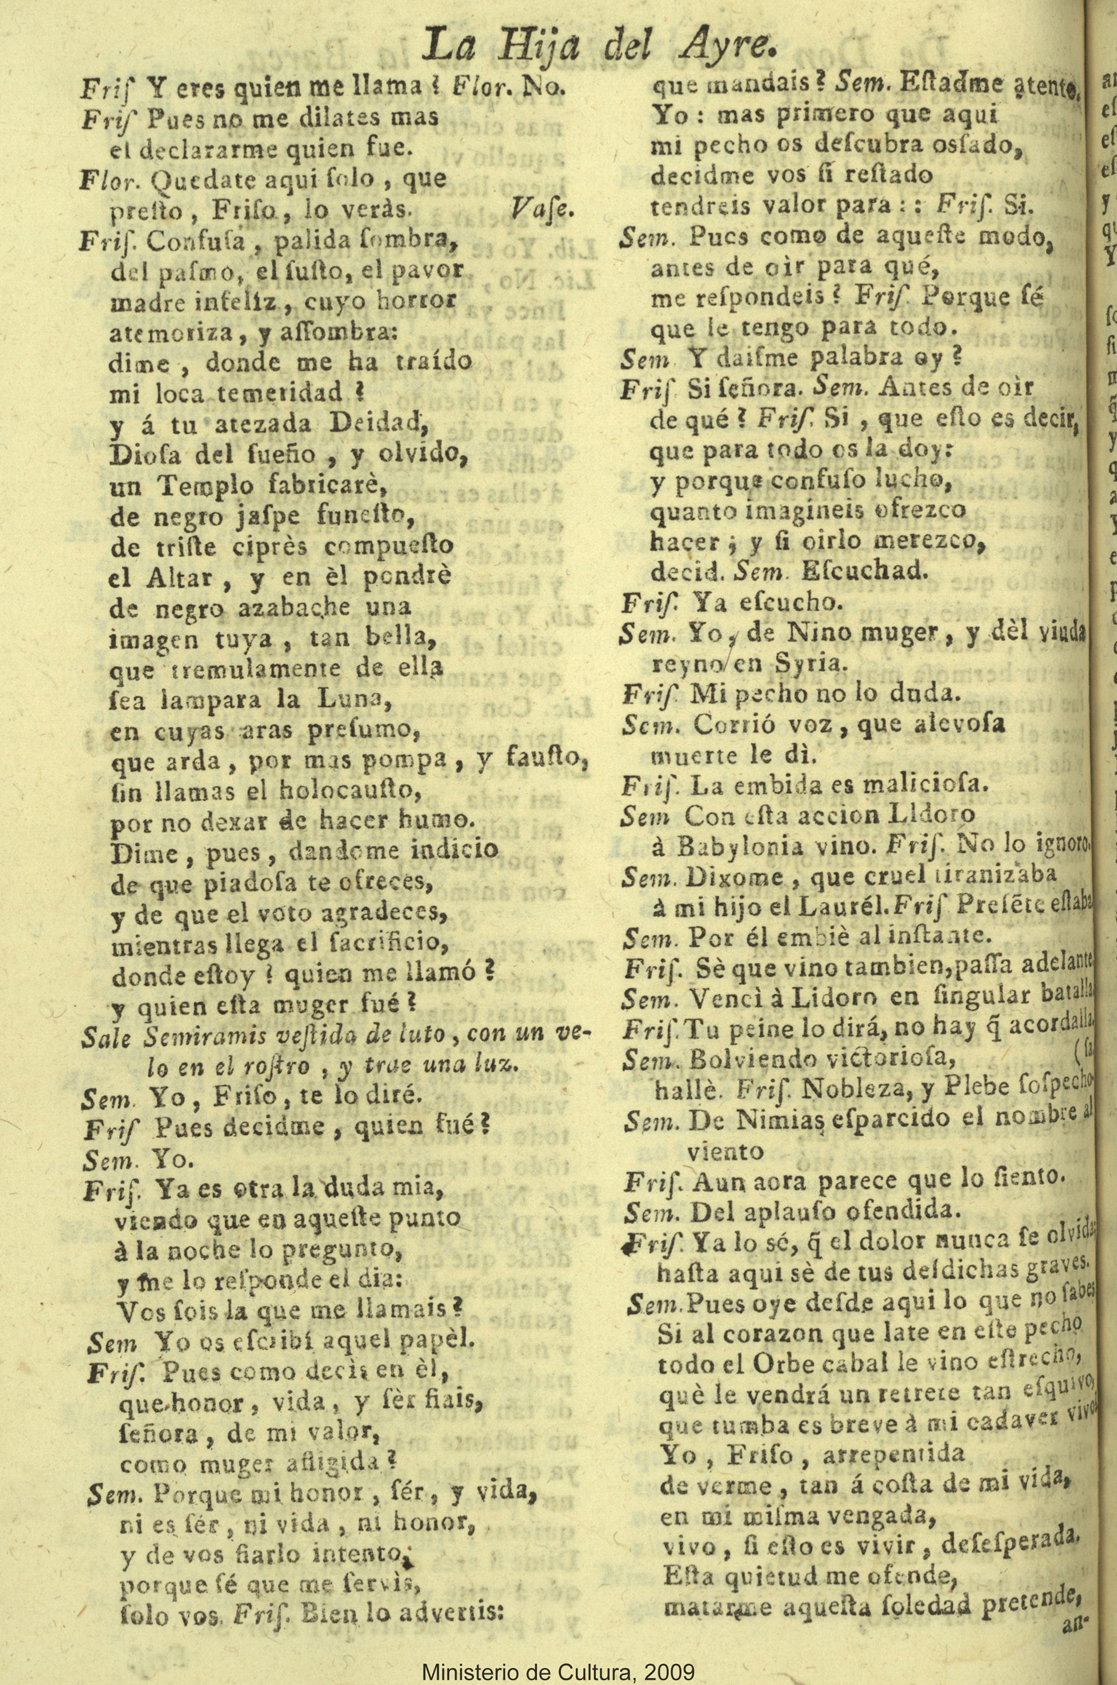 La Hija del Ayre.
Friſ Y eres quien me llama? Flor. No.
Friſ Pues no me dilates mas
el declararme quien fue.
Flor. Quedate aqui ſolo, que
preſto, Friſo, lo veràs. Vaſe.
Friſ. Confuſa, palida ſombra,
del paſmo, el ſuſto, el pavor
madre infeliz, cuyo horror
atemoriza, y aſſombra:
dime, donde me ha traído
mi loca temeridad?
y á tu atezada Deidad,
Dioſa del ſueño, y olvido,
un Templo fabricarè,
de negro jaſpe funeſto,
de triſte ciprès compueſto
el Altar, y en èl pondrè
de negro azabache una
imagen tuya, tan bella,
que tremulamente de ella
ſea lampara la Luna,
en cuyas aras preſumo,
que arda, por mas pompa, y fauſto,
ſin llamas el holocauſto,
por no dexar de hacer humo.
Dime, pues, dandome indicio
de que piadoſa te ofreces,
y de que el voto agradeces,
mientras llega el ſacrificio,
donde eſtoy? quien me llamó?
y quien eſta muger fué?
Sale Semiramis veſtida de luto, con un ve-
lo en el roſtro, y trae una luz.
Sem. Yo, Friſo, te lo diré.
Friſ Pues decidme, quien fué?
Sem. Yo.
Friſ. Ya es otra la duda mia,
viendo que en aqueſte punto
à la noche lo pregunto,
y me lo reſponde el dia:
Vos ſois la que me llamais?
Sem Yo os eſcribí aquel papèl.
Friſ. Pues como decìs en èl,
que honor, vida, y ſèr fiais,
ſeñora, de mi valor,
como muger afligida?
Sem. Porque mi honor, ſér, y vida,
ni es ſér, ni vida, ni honor,
y de vos fiarlo intento,
porque ſé que me ſervìs,
ſolo vos. Friſ. Bien lo advertis:
que mandais? Sem. Eſtadme atento,
Yo: mas primero que aqui
mi pecho os deſcubra oſſado,
decidme vos ſi reſtado
tendreis valor para:: Friſ. Si.
Sem. Pues como de aqueſte modo,
antes de oìr para qué,
me reſpondeis? Friſ Porque ſé
que le tengo para todo.
Sem Y daiſme palabra oy?
Friſ Si ſeñora. Sem. Antes de oìr
de qué? Friſ. Si, que eſto es decir,
que para todo os la doy:
y porque confuſo lucho,
quanto imagineis ofrezco
hacer; y ſi oirlo merezco,
decid. Sem. Eſcuchad.
Friſ. Ya eſcucho.
Sem. Yo, de Nino muger, y dèl viuda
reyno en Syria.
Friſ. Mi pecho no lo duda.
Sem. Corrió voz, que alevoſa
muerte le dì.
Friſ. La embida es malicioſa.
Sem Con eſta accion Lidoro
à Babylonia vino. Friſ. No lo ignoro.
Sem. Dixome, que cruel tiranizaba
à mi hijo el Laurél. Friſ Preſẽte eſtaba
Sem. Por él embiè al inſtante.
Friſ. Sè que vino tambien, paſſa adelante
Sem. Vencì à Lidoro en ſingular batalla
Friſ. Tu peine lo dirá, no hay q̃ acordalla
Sem. Bolviendo victorioſa, (ſa
hallè. Friſ. Nobleza, y Plebe ſoſpecho
Sem. De Nimias eſparcido el nombre al
viento
Friſ. Aun aora parece que lo ſiento.
Sem. Del aplauſo ofendida.
Friſ. Ya lo sé, q̃ el dolor nunca ſe olvida
haſta aqui sè de tus deſdichas graves.
Sem. Pues oye deſde aqui lo que no ſabes
Si al corazon que late en eſte pecho
todo el Orbe cabal le vino eſtrecho,
què le vendrá un retrete tan eſquivo,
que tumba es breve à mi cadaver vivo?
Yo, Friſo, arrepentida
de verme, tan á coſta de mi vida,
en mi miſma vengada,
vivo, ſi eſto es vivir, deſeſperada.
Eſta quietud me ofende,
matarme aqueſta ſoledad pretende,
an-
Ministerio de Cultura, 2009